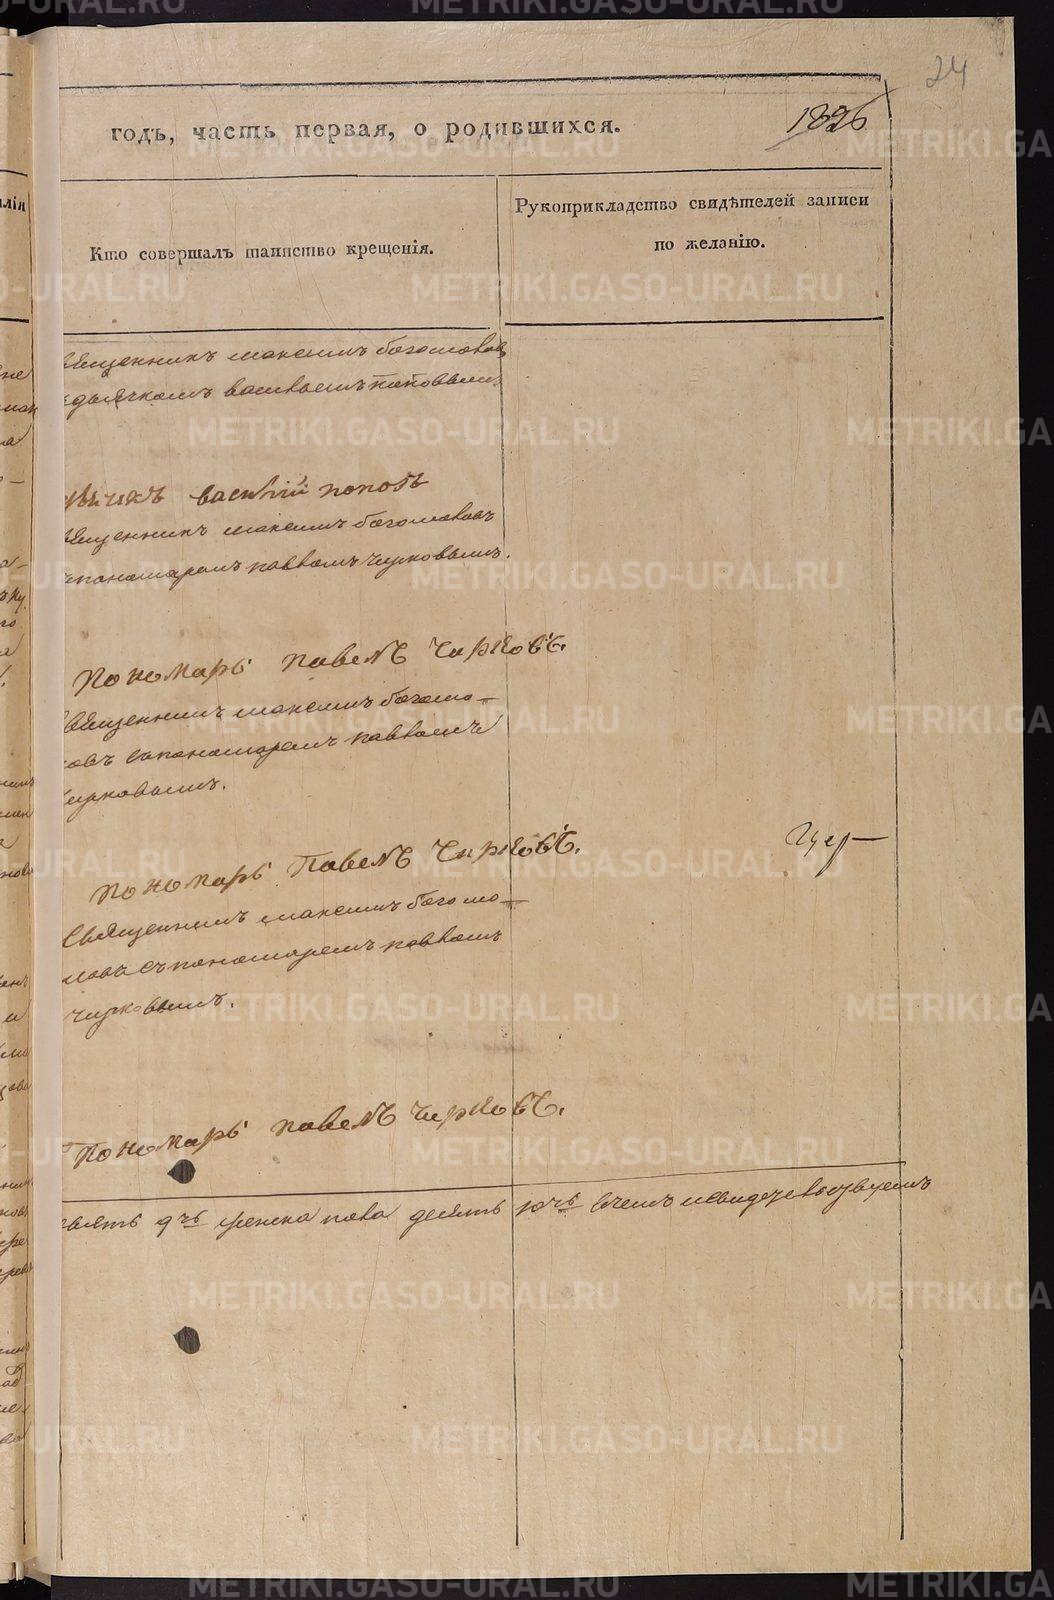 24
годъ, часть первая, о родившихся.
1896
Кто совершалъ таинство крещенія.
Рукоприкладство свидѣтелей записи
по желанію.
священникъ максимъ богомоловъ
съ дьячкомъ васильемъ поповымъ
дьячекъ василій поповъ
священникъ максимъ богомоловъ
с пономаремъ павломъ чирковымъ.
Пономарь павелъ Чирковъ.
священникъ максимъ богомо-
ловъ съ пономаремъ павломъ
чирковымъ.
Пономарь Павелъ Чирковъ.
Цер-
Священникъ максимъ богомо-
ловъ съ пономаремъ павломъ
чирковымъ.
Пономарь павелъ Чирковъ.
девять 9ть женска пола десять 10ть в чемъ и свидетельствуемъ
METRIKI.GASO-URAL.RU